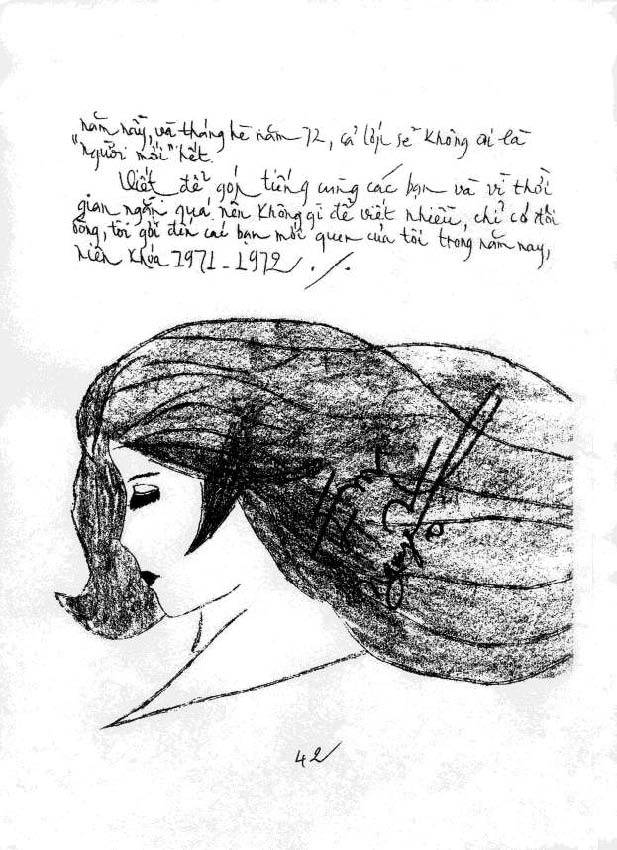 năm này, và tháng hè năm 72, cả lớp sẽ không ai là
"người mới" hết.
Viết để góp tiếng cùng các bạn và vì thời
gian ngắn quá nên không gì để viết nhiều, chỉ có đôi
dòng, tôi gởi đến các bạn mới quen của tôi trong năm nay,
niên khóa 1971-1972 ./.
42